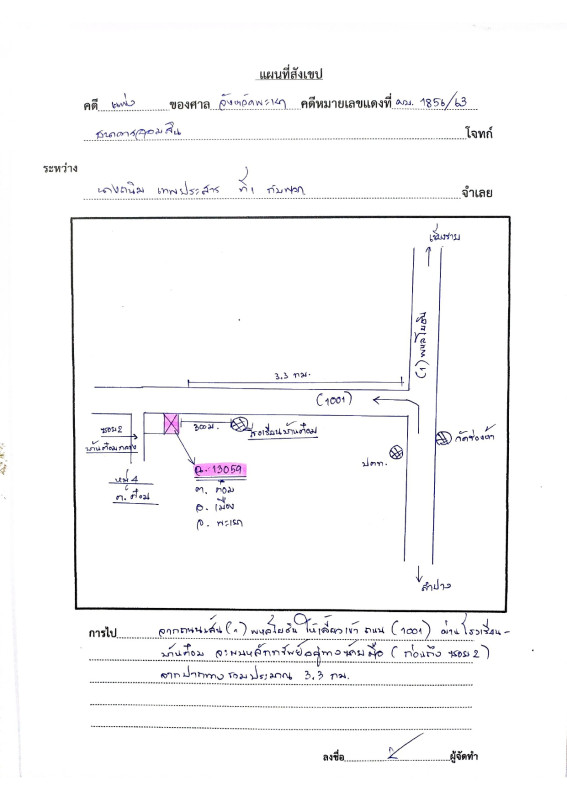 แผนที่สังเขป
คดี แพ่ง ของศาล จังหวัดพะเยา คดีหมายเลขแดงที่ ผบ. 1856/63
ธนาคารออมสิน โจทก์
ระหว่าง
นางถนิม เทพประสาร ที่1 กับพวก จำเลย
เชียงราย
(1) พหลโยธิน
3.3 กม.
(1001)
ซอย2
300ม.
โรงเรียนบ้านต๋อม
บ้านต๋อมกลาง
ปตท.
หมู่ 4
ต. ต๋อม
ฉ. 13059
ต. ต๋อม
อ. เมือง
จ. พะเยา
ลำปาง
การไป จากถนนเส้น (1) พหลโยธิน ให้เลี้ยวเข้า ถนน (1001) ผ่านโรงเรียน-
บ้านต๋อม จะพบหลักทรัพย์อยู่ทางซ้ายมือ ( ก่อนถึง ซอย 2 )
จากปากทางรวมประมาณ 3.3 กม.
ลงชื่อ ผู้จัดทำ